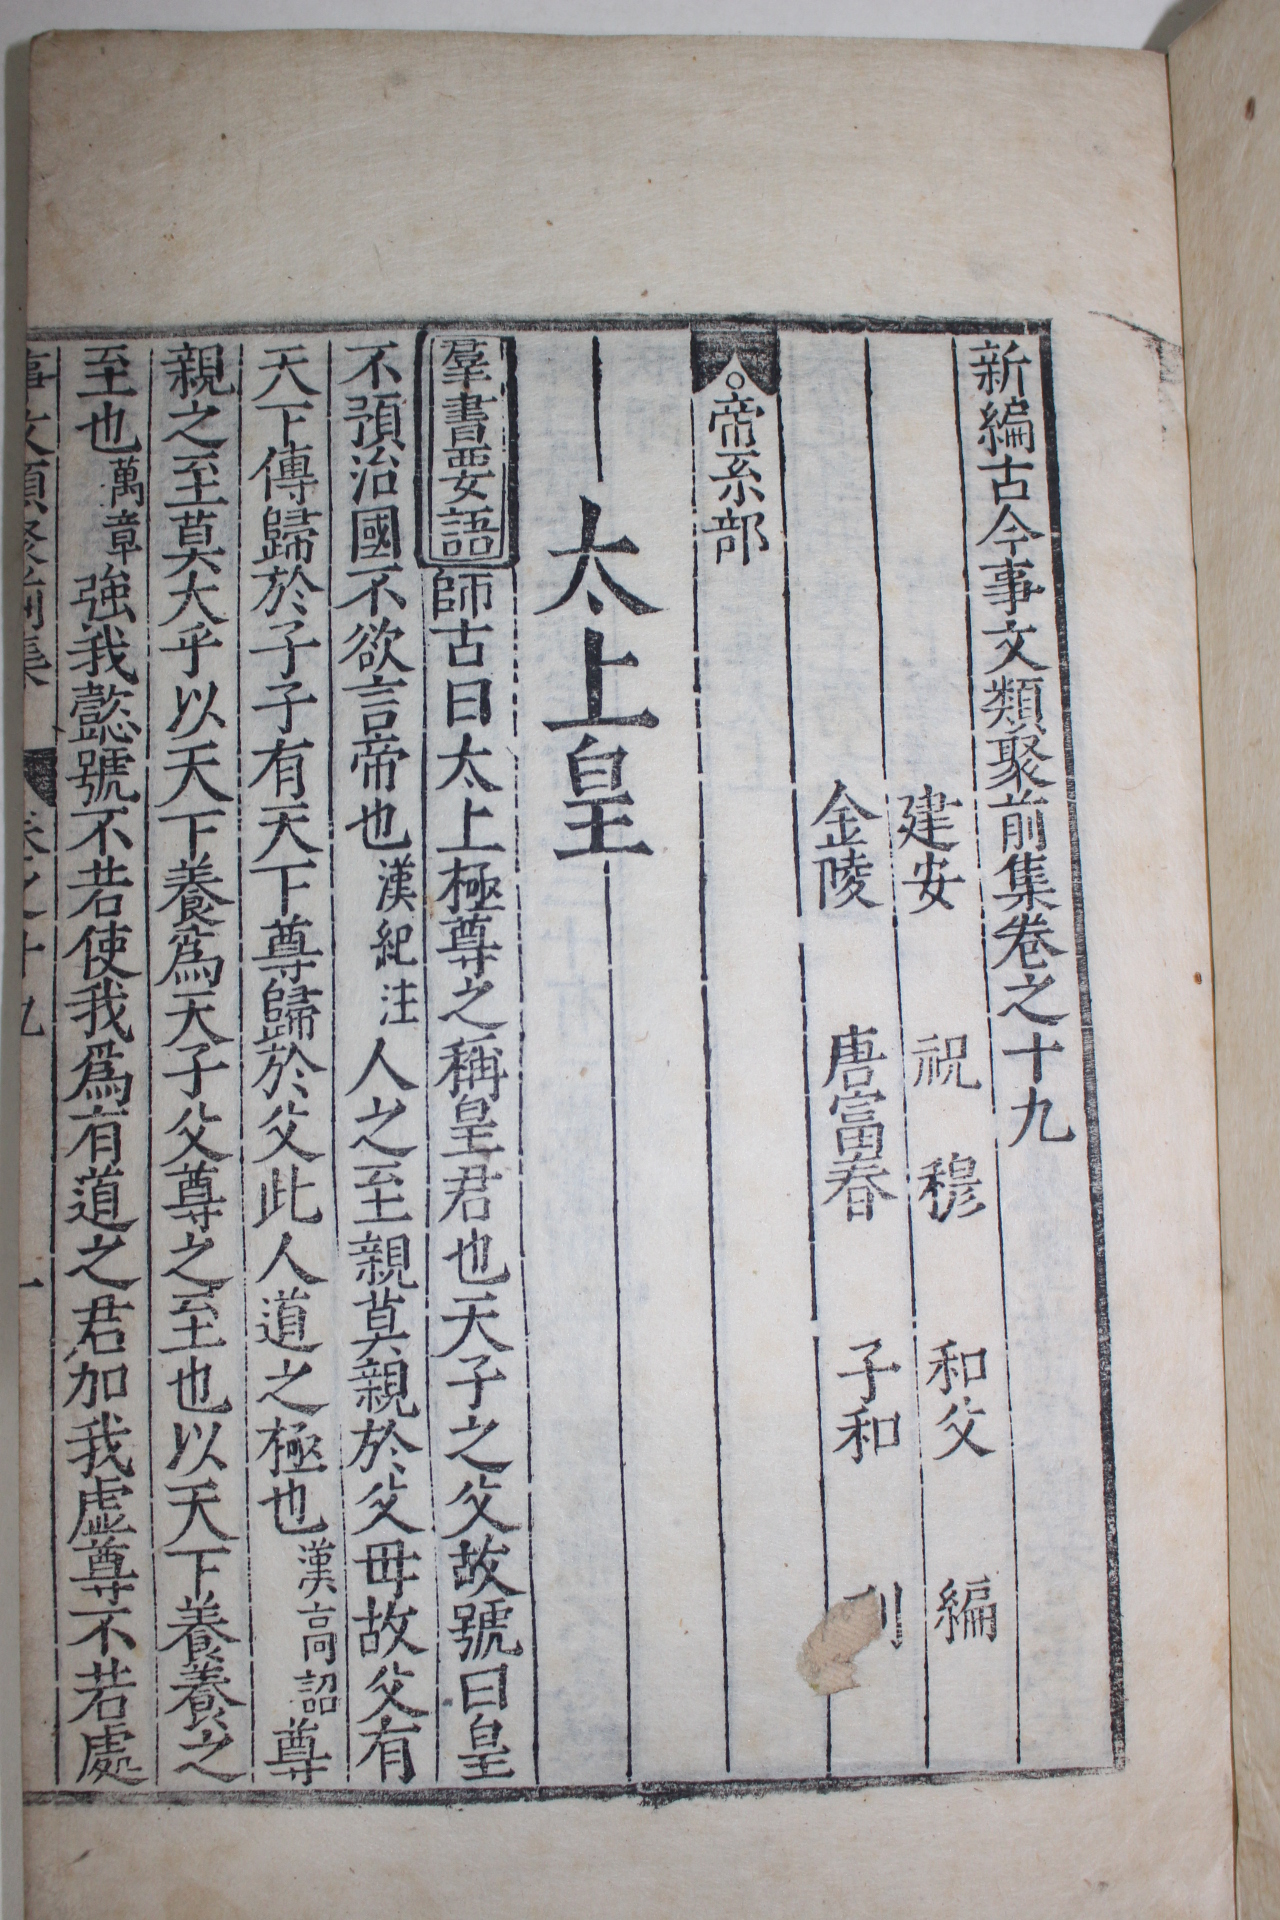 新編古今事文類聚前集卷之十九
建安 祝 穆 和父 編
金陵 唐富春 子和 刊
○帝系部
太上皇
羣書要語 師古曰太上極尊之稱皇君也天子之父故號曰皇
不預治國不欲言帝也漢紀注人之至親莫親於父母故父有
天下傳歸於子子有天下尊歸於父此人道之極也漢高詔尊
親之至莫大乎以天下養爲天子父尊之至也以天下養養之
至也萬章強我懿號不若使我爲有道之君加我虛尊不若處
事文類聚前集 卷之十九 一